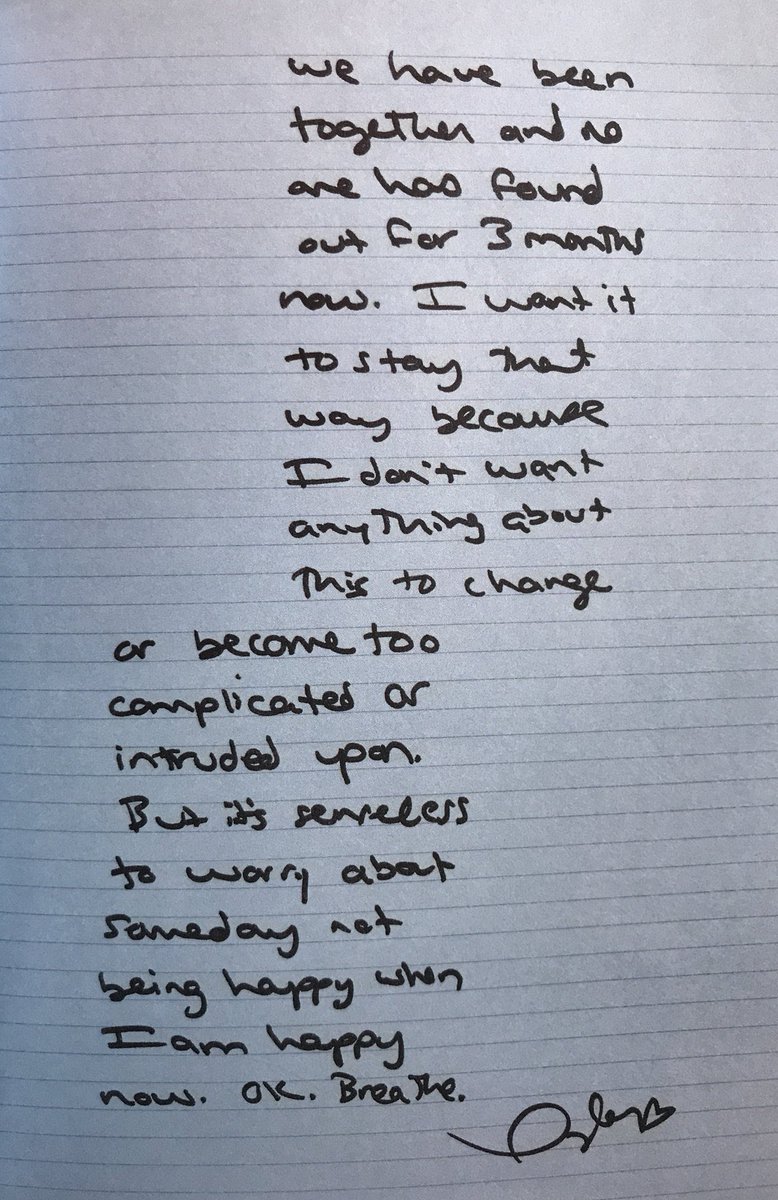 we have been
together and no
one has found
out for 3 months
now. I want it
to stay that
way because
I don't want
anything about
this to change
or become too
complicated or
intruded upon.
But it's senseless
to worry about
someday not
being happy when
I am happy
now. OK. Breathe.